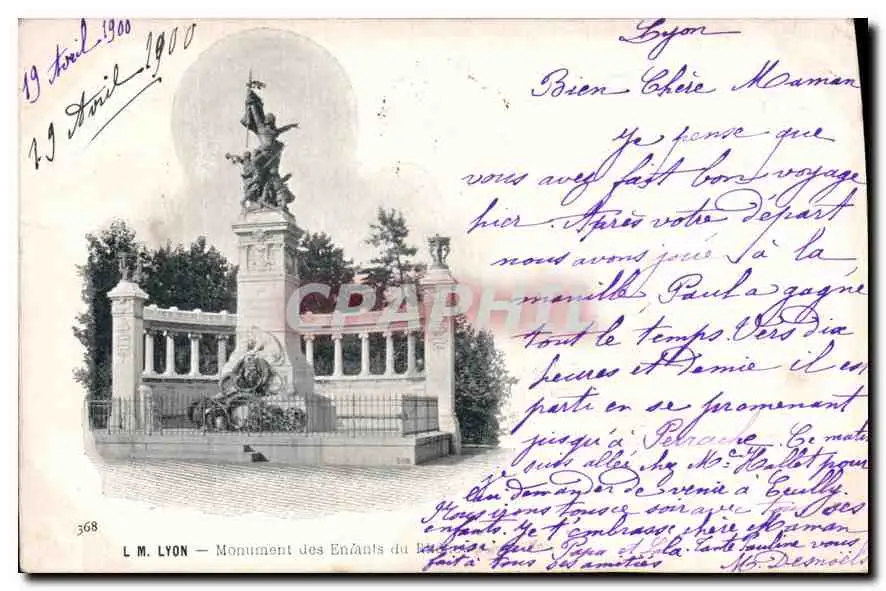 19 Avril 1900
19 Avril 1900
Lyon
Bien Chère Maman
Je pense que
vous avez fait bon voyage
hier. Après votre départ
nous avons joué à la
manille, Paul a gagné
tout le temps. Vers dix
heures et demie il est
parti en se promenant
jusqu'à Perrache. Ce matin
suis allée chez Mme Hallet pour
lui demander de venir à Ecully.
Nous irons tous ce soir avec tous ses
enfants. Je t'embrasse chère Maman
ainsi que Papa et Lola. Tante Pauline vous
fait à tous ses amitiés M. Desnoëls
CPARAMA.COM
368
L M. LYON — Monument des Enfants du